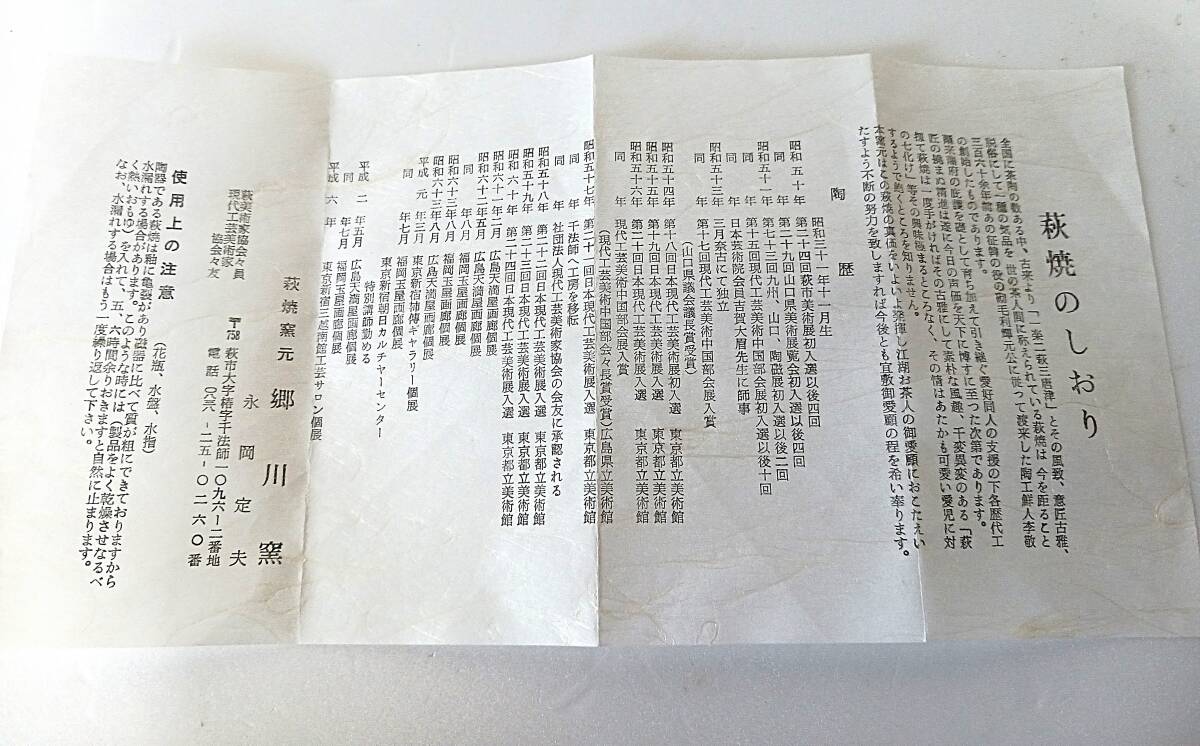 萩焼のしおり
全国に茶陶の数ある中、古来より「一楽二萩三唐津」とその風致、意匠古雅、
説俗にして一種の気品を 世の茶人間に称えられている萩焼は 今を距ること
三百六十余年前あの征韓の役の砌毛利輝元公に従って渡来した陶工鮮人李敬
の創始したものであります。
爾来藩府の庇護を礎として育ち加えて引き継ぐ愛好同人の支援の下各歴代工
匠の撓まぬ精進は遂に今日の声価を天下に博すに至つた次第であります。
扨て萩焼は一度手がければその古雅にして素朴な風趣、千変異変のある「萩
の七化け」等その興味極まるところなく、その情はあたかも可愛い愛児に対
するようで飽くところを知りません。
本窯元はこの萩焼の真価をいよいよ発揮し江湖お茶人の御愛顧におこたえい
たすよう不断の努力を致しますれば今後とも宜敷御愛顧の程を希い奉ります。
陶歴
昭和三十一年十一月生
昭和五十年 第二十四回萩市美術展初入選以後四回
同年 第二十九回山口県美術展覧会初入選以後四回
同年 第七十三回九州、山口、陶磁展初入選以後二回
昭和五十一年 第十五回現代工芸美術中国部会展初入選以後十回
同年 日本芸術院会員吉賀大眉先生に師事
昭和五十三年 三月奈古にて独立
同年 第十七回現代工芸美術中国部会展入賞
(山口県議会議長賞受賞)
昭和五十四年 第十八回日本現代工芸美術展初入選 東京都立美術館
昭和五十五年 第十九回日本現代工芸美術展入選 東京都立美術館
昭和五十六年 第二十回日本現代工芸美術展入選 東京都立美術館
同年 現代工芸美術中国部会展入賞
(現代工芸美術中国部会々長賞受賞)広島県立美術館
昭和五十七年 第二十一回日本現代工芸美術展入選 東京都立美術館
同年 千法師へ工房を移転
同年 社団法人現代工芸美術家協会の会友に承認される
昭和五十八年 第二十二回日本現代工芸美術展入選 東京都立美術館
昭和五十九年 第二十三回日本現代工芸美術展入選 東京都立美術館
昭和六十年 第二十四回日本現代工芸美術展入選 東京都立美術館
昭和六十一年二月 広島天満屋画廊個展
昭和六十二年五月 広島天満屋画廊個展
昭和六十三年三月 福岡玉屋画廊個展
昭和六十三年八月 広島天満屋画廊個展
平成元年三月 東京新宿柿傳ギャラリー個展
同年七月 福岡玉屋画廊個展
東京新宿朝日カルチャーセンター
特別講師勤める
平成二年五月 広島天満屋画廊個展
同年七月 福岡玉屋画廊個展
平成六年 東京新宿三越南館工芸サロン個展
萩焼窯元 郷川窯
永岡定夫
〒758 萩市大字椿字千法師一〇九六ー二番地
電話(〇八三八)ー二五ー〇二六〇番
萩美術家協会々員
現代工芸美術家協会々友
使用上の注意 (花瓶、水盤、水指)
陶器である萩焼は釉に亀裂があり磁器に比べて質が粗にできておりますから
水漏れする場合があります。このような時には(製品をよく乾燥させなるべ
く熱いおもゆ)を入れて、五、六時間余りおきますと自然に止まります。
なお、水漏れする場合はもう一度繰り返して下さい。